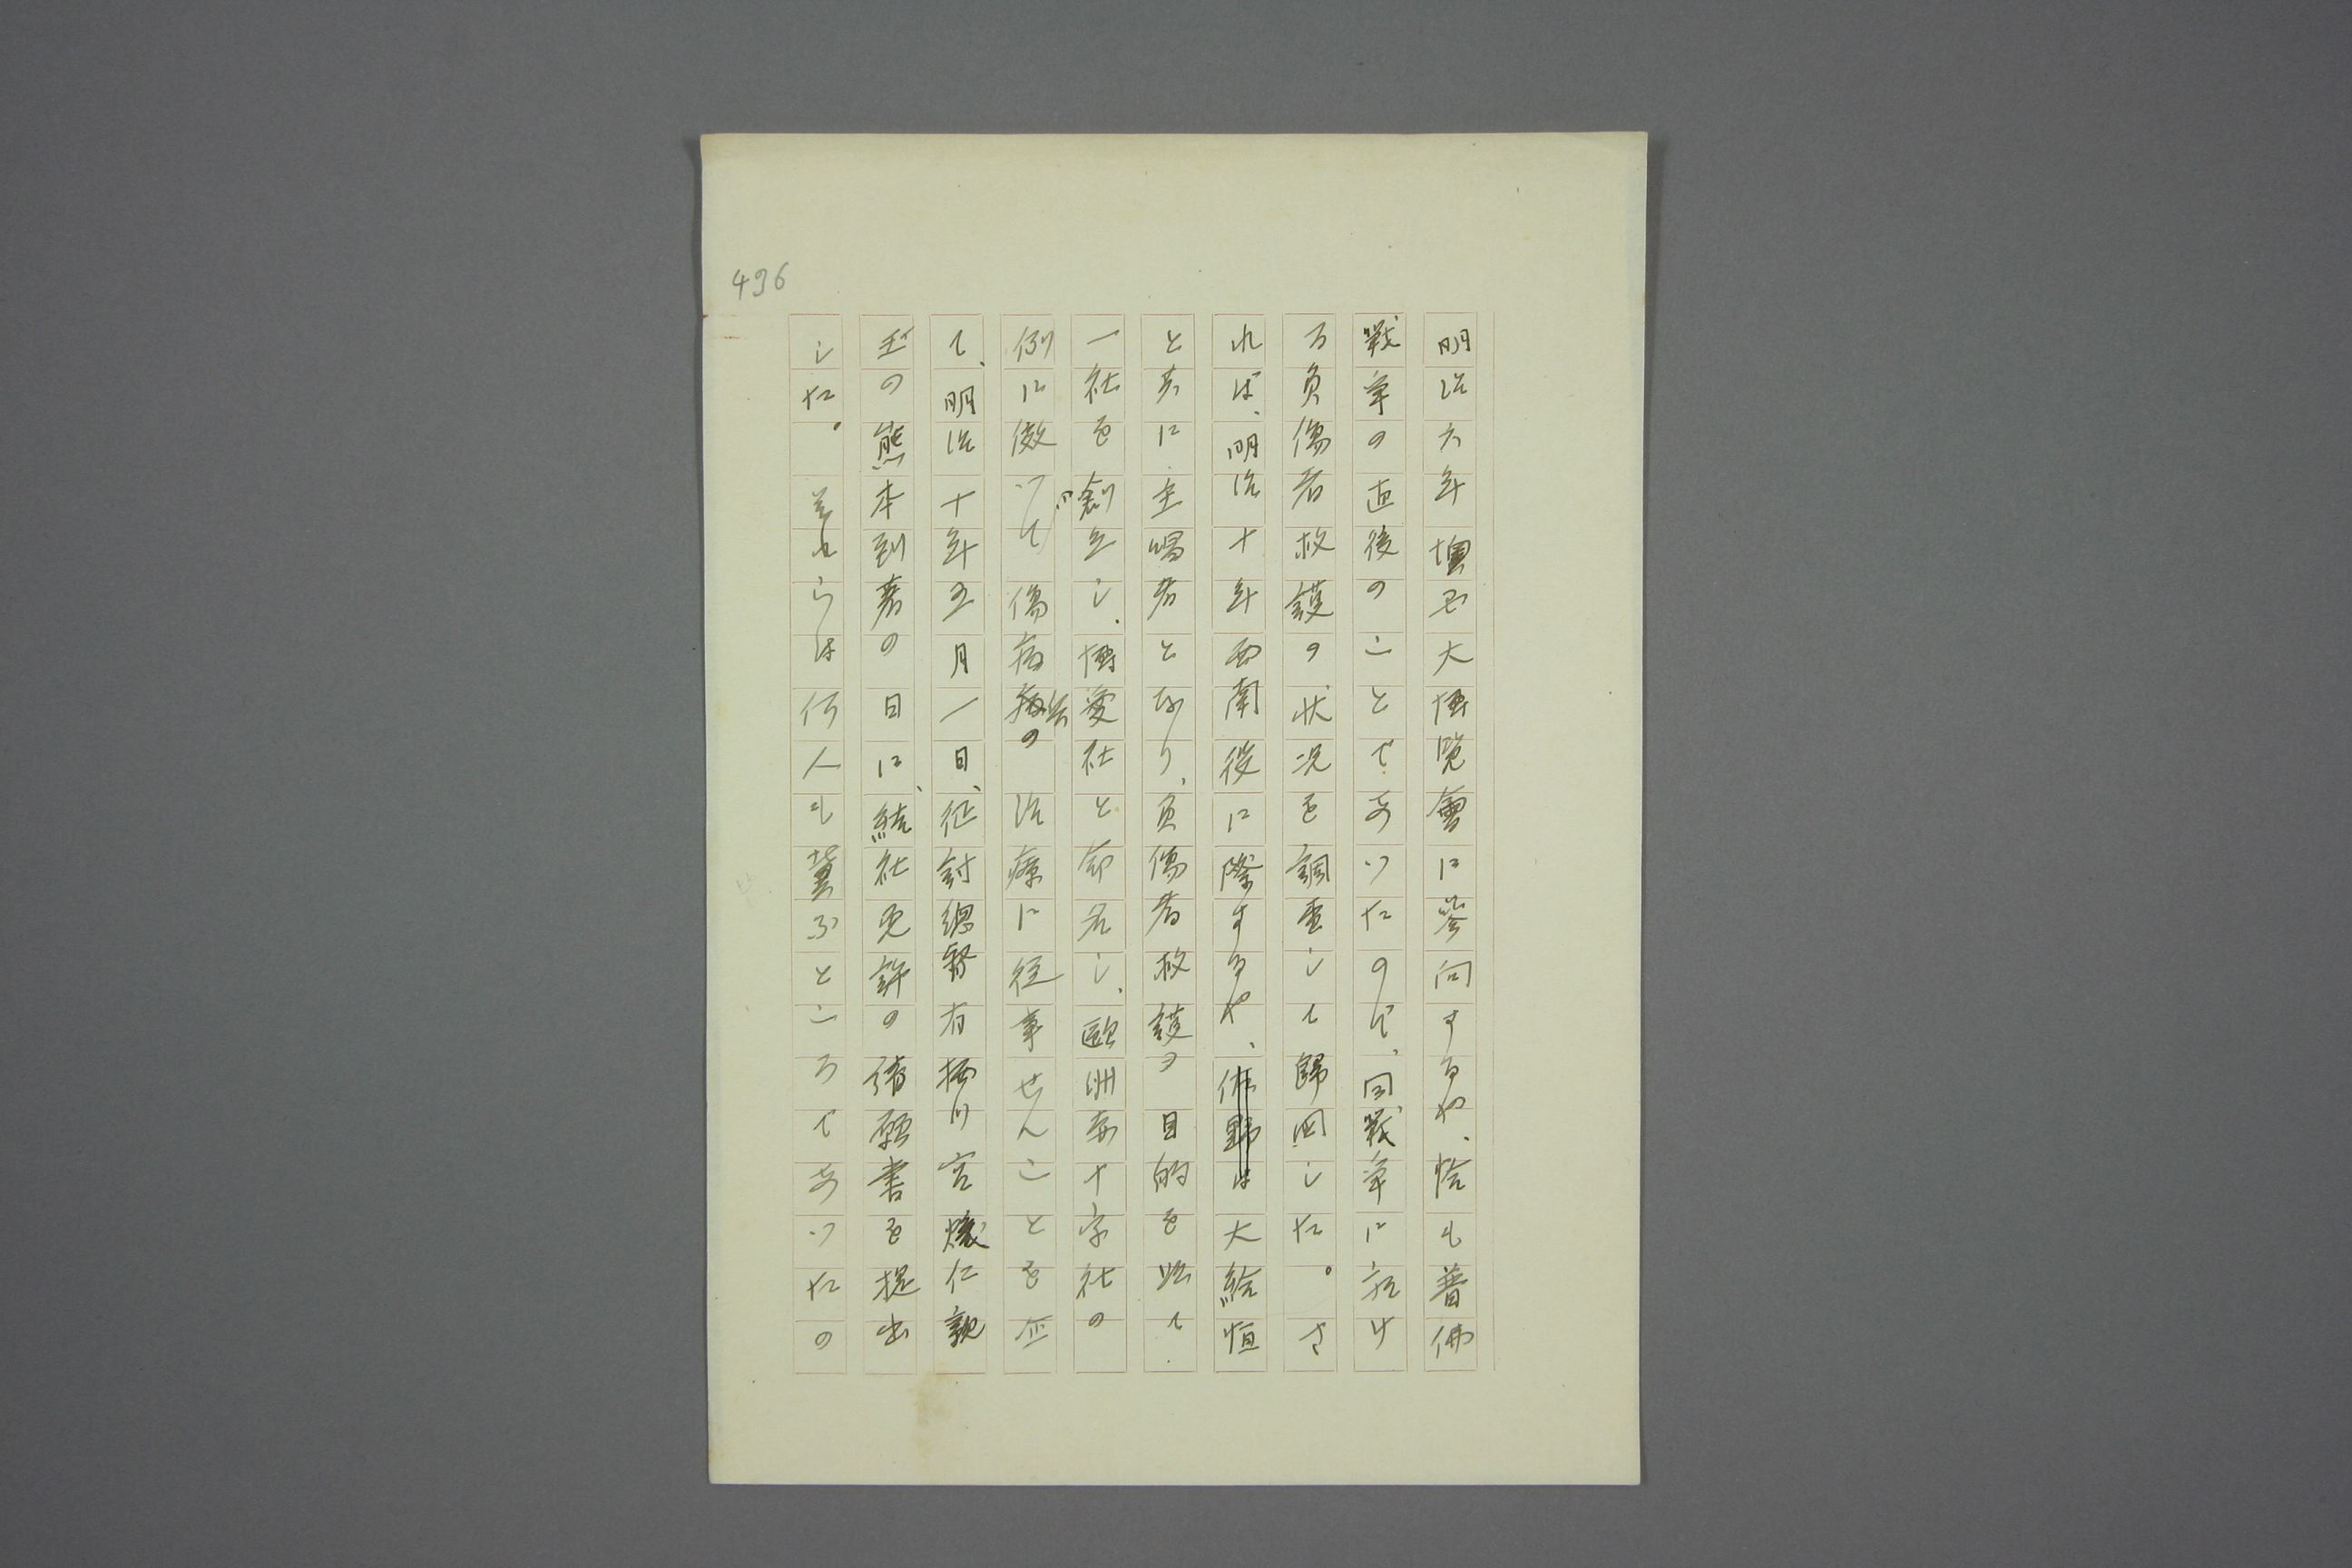 496
明治六年墺国大博覧會に參向するや、恰も普佛
戰爭の直後のことであつたので、同戰爭に於け
る負傷者救護の状況を調査して歸国した。さ
れば、明治十年西南役に際するや、佐野は大給恒
と共に主唱者となり、負傷者救護を目的を以て
一社を創立し、博愛社と命名し、歐洲赤十字社の
例に傚つて傷病者の治療に從事せんことを企
て、明治十年五月一日、征討總督有栖川宮熾仁親
王の熊本到着の日に、結社免許の請願書を提出
した。それらは何人も冀ふところであつたの